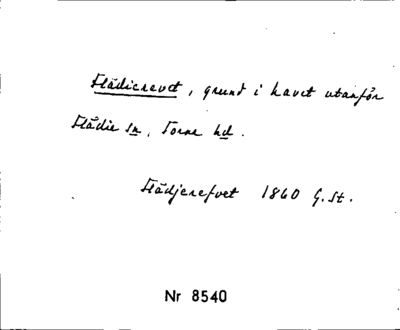 Flädierevet, grund i havet utanför
Flädie sn, Torna hd.
Flädjerefvet 1860 G. St.
Nr 8540